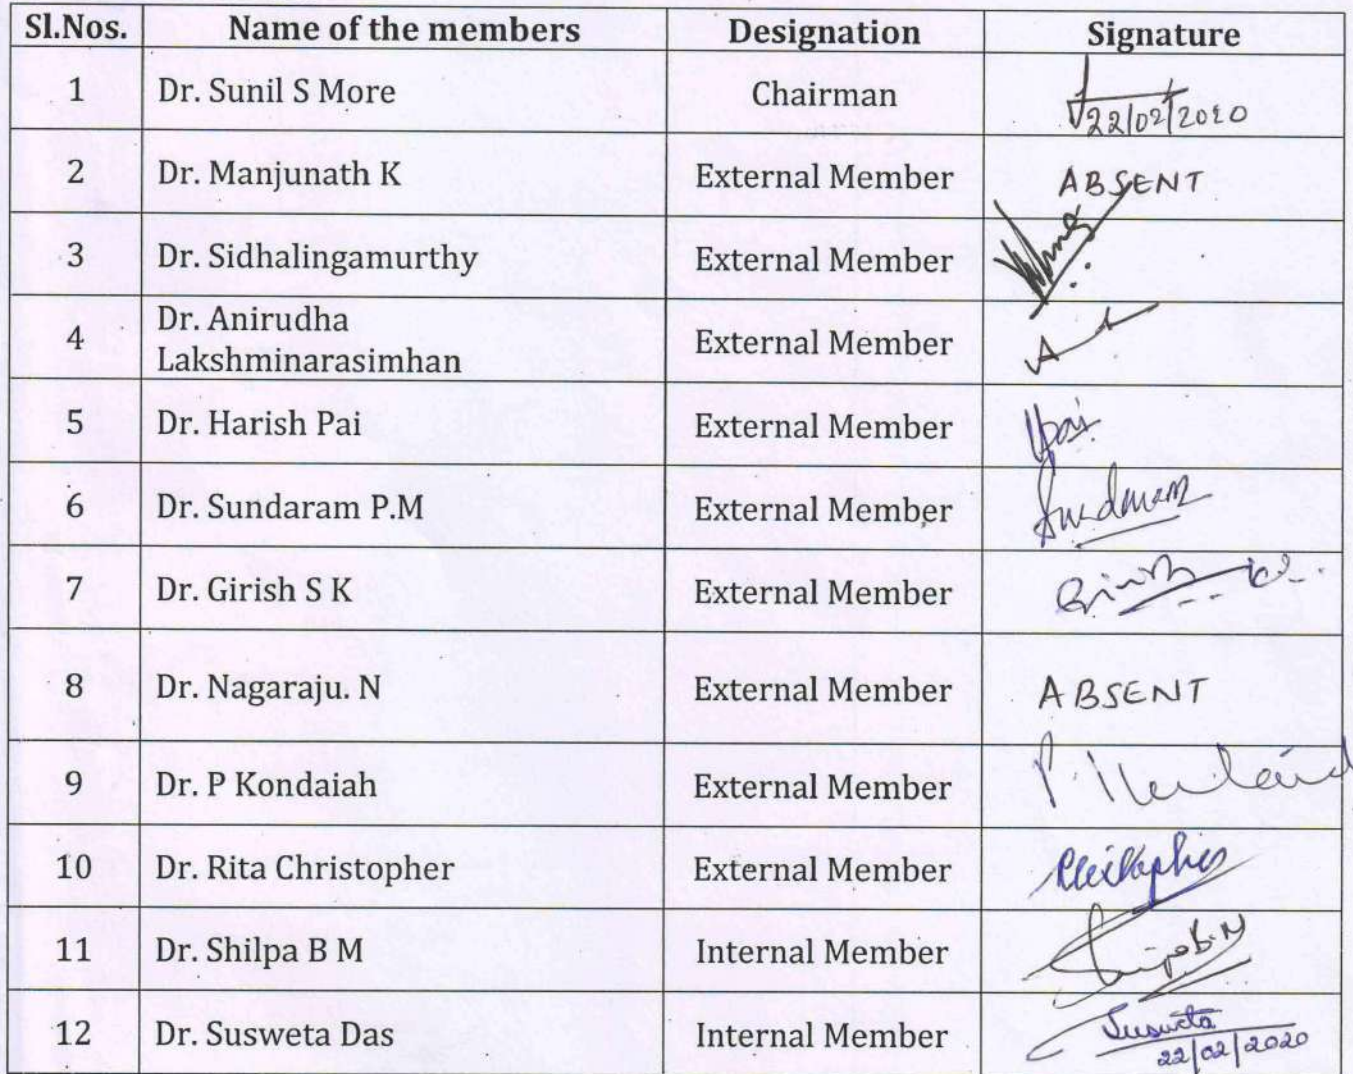 Sl.Nos. Name of the members Designation Signature
1 Dr. Sunil S More Chairman 22/02/2020
2 Dr. Manjunath K External Member ABSENT
3 Dr. Sidhalingamurthy External Member
4 Dr. Anirudha
Lakshminarasimhan External Member
5 Dr. Harish Pai External Member Pai
6 Dr. Sundaram P.M External Member Sundaram
7 Dr. Girish S K External Member
8 Dr. Nagaraju. N External Member ABSENT
9 Dr. P Kondaiah External Member
10 Dr. Rita Christopher External Member
11 Dr. Shilpa B M Internal Member
12 Dr. Susweta Das Internal Member Susweta
22/02/2020